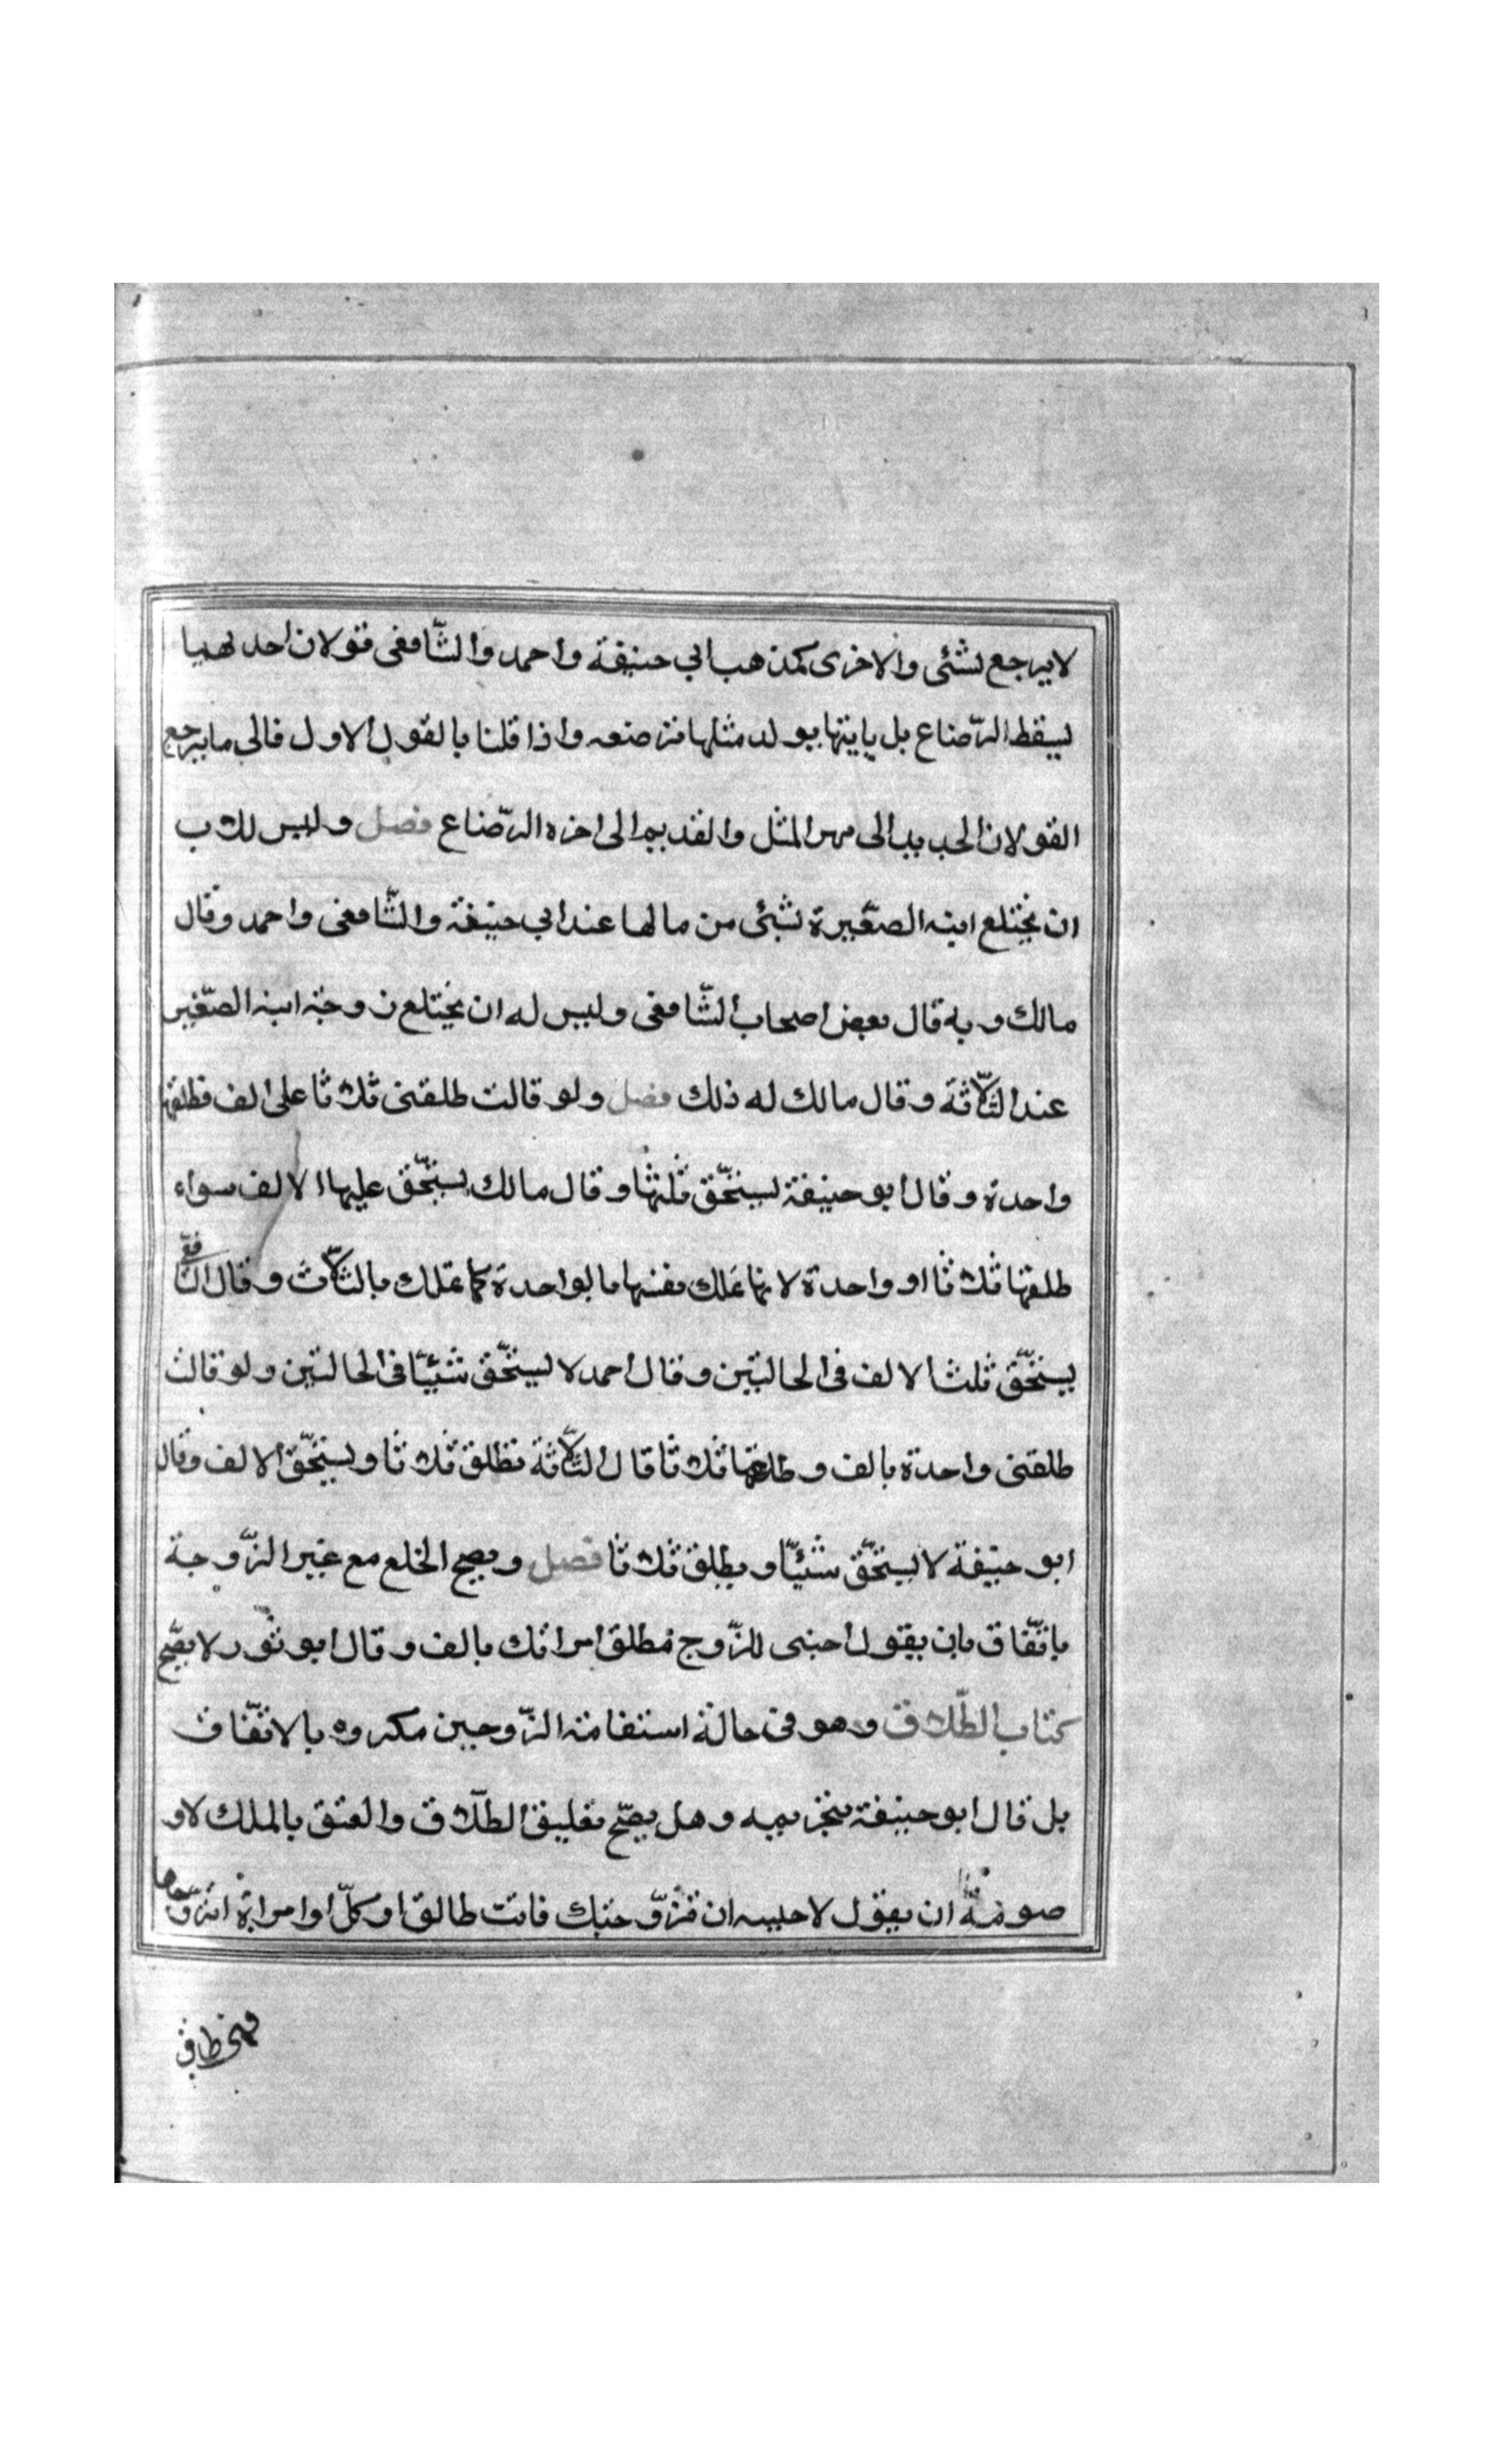 لا يرجع بشئ والاخرى كمذهب ابي حنيفة واحمد والشّافعى قولان احدهما
يسقط الرّضاع بل ياتيها بولد مثلها ترضعه واذا قلنا بالقول الاول فالى ما يرجع
القولان الجديد الى مهر المثل والقديم الى اجرة الرّضاع فصل وليس للاب
ان يختلع ابنه الصّغيرة بشئ من مالها عند ابي حنيفة والشّافعى واحمد وقال
مالك وبه قال بعض اصحاب الشّافعى وليس له ان يختلع زوجة ابنه الصّغير
عند الثّلاثة وقال مالك له ذلك فصل ولو قالت طلقنى ثلاثا على الف فطلقها
واحدة وقال ابو حنيفة يستحّق ثلثها وقال مالك يستحّق عليها الالف سواء
طلقها ثلاثا او واحدة لانها تملك نفسها بالواحدة كما تملك بالثّلاث وقال الشّافعى
يستحّق ثلث الالف فى الحالتين وقال احمد لا يستحّق شيئا فى الحالتين ولو قالت
طلقنى واحدة بالف وطلقها ثلاثا قال الثّلاثة تطلق ثلاثا ويستحّق الالف وقال
ابو حنيفة لا يستحّق شيئا ويطلق ثلاثا فصل ويصح الخلع مع غير الزّوجة
باتّفاق بان يقول اجنبى للزّوج طلق امراتك بالف وقال ابو ثور لا يصّح
كتاب الطّلاق وهو فى حالة استقامة الزّوجين مكروه بالاتّفاق
بل قال ابو حنيفة بتحريمه وهل يصّح تعليق الطّلاق والعتق بالملك لا و
صورته ان يقول لاجنبيه ان تزّوجتك فانت طالق او كلّ امراة اتزّوجها
فهى طالق